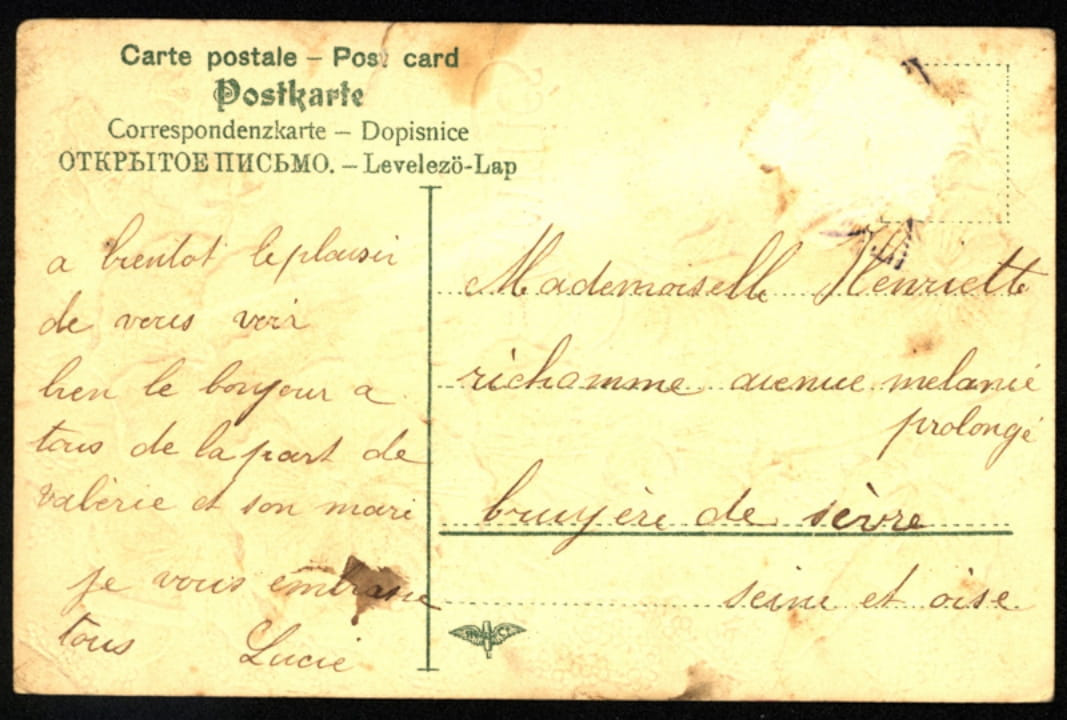 Carte postale – Post card
Postkarte
Correspondenzkarte – Dopisnice
ОТКРЫТОЕ ПИСЬМО. – Levelezö-Lap
a bientot le plaisir
de vous voir
bien le bonjour a
tous de la part de
valèrie et son mari
je vous embrasse
tous Lucie
Mademoiselle Henriette
richomme avenue melanie
prolongé
bruyère de sèvre
seine et oise